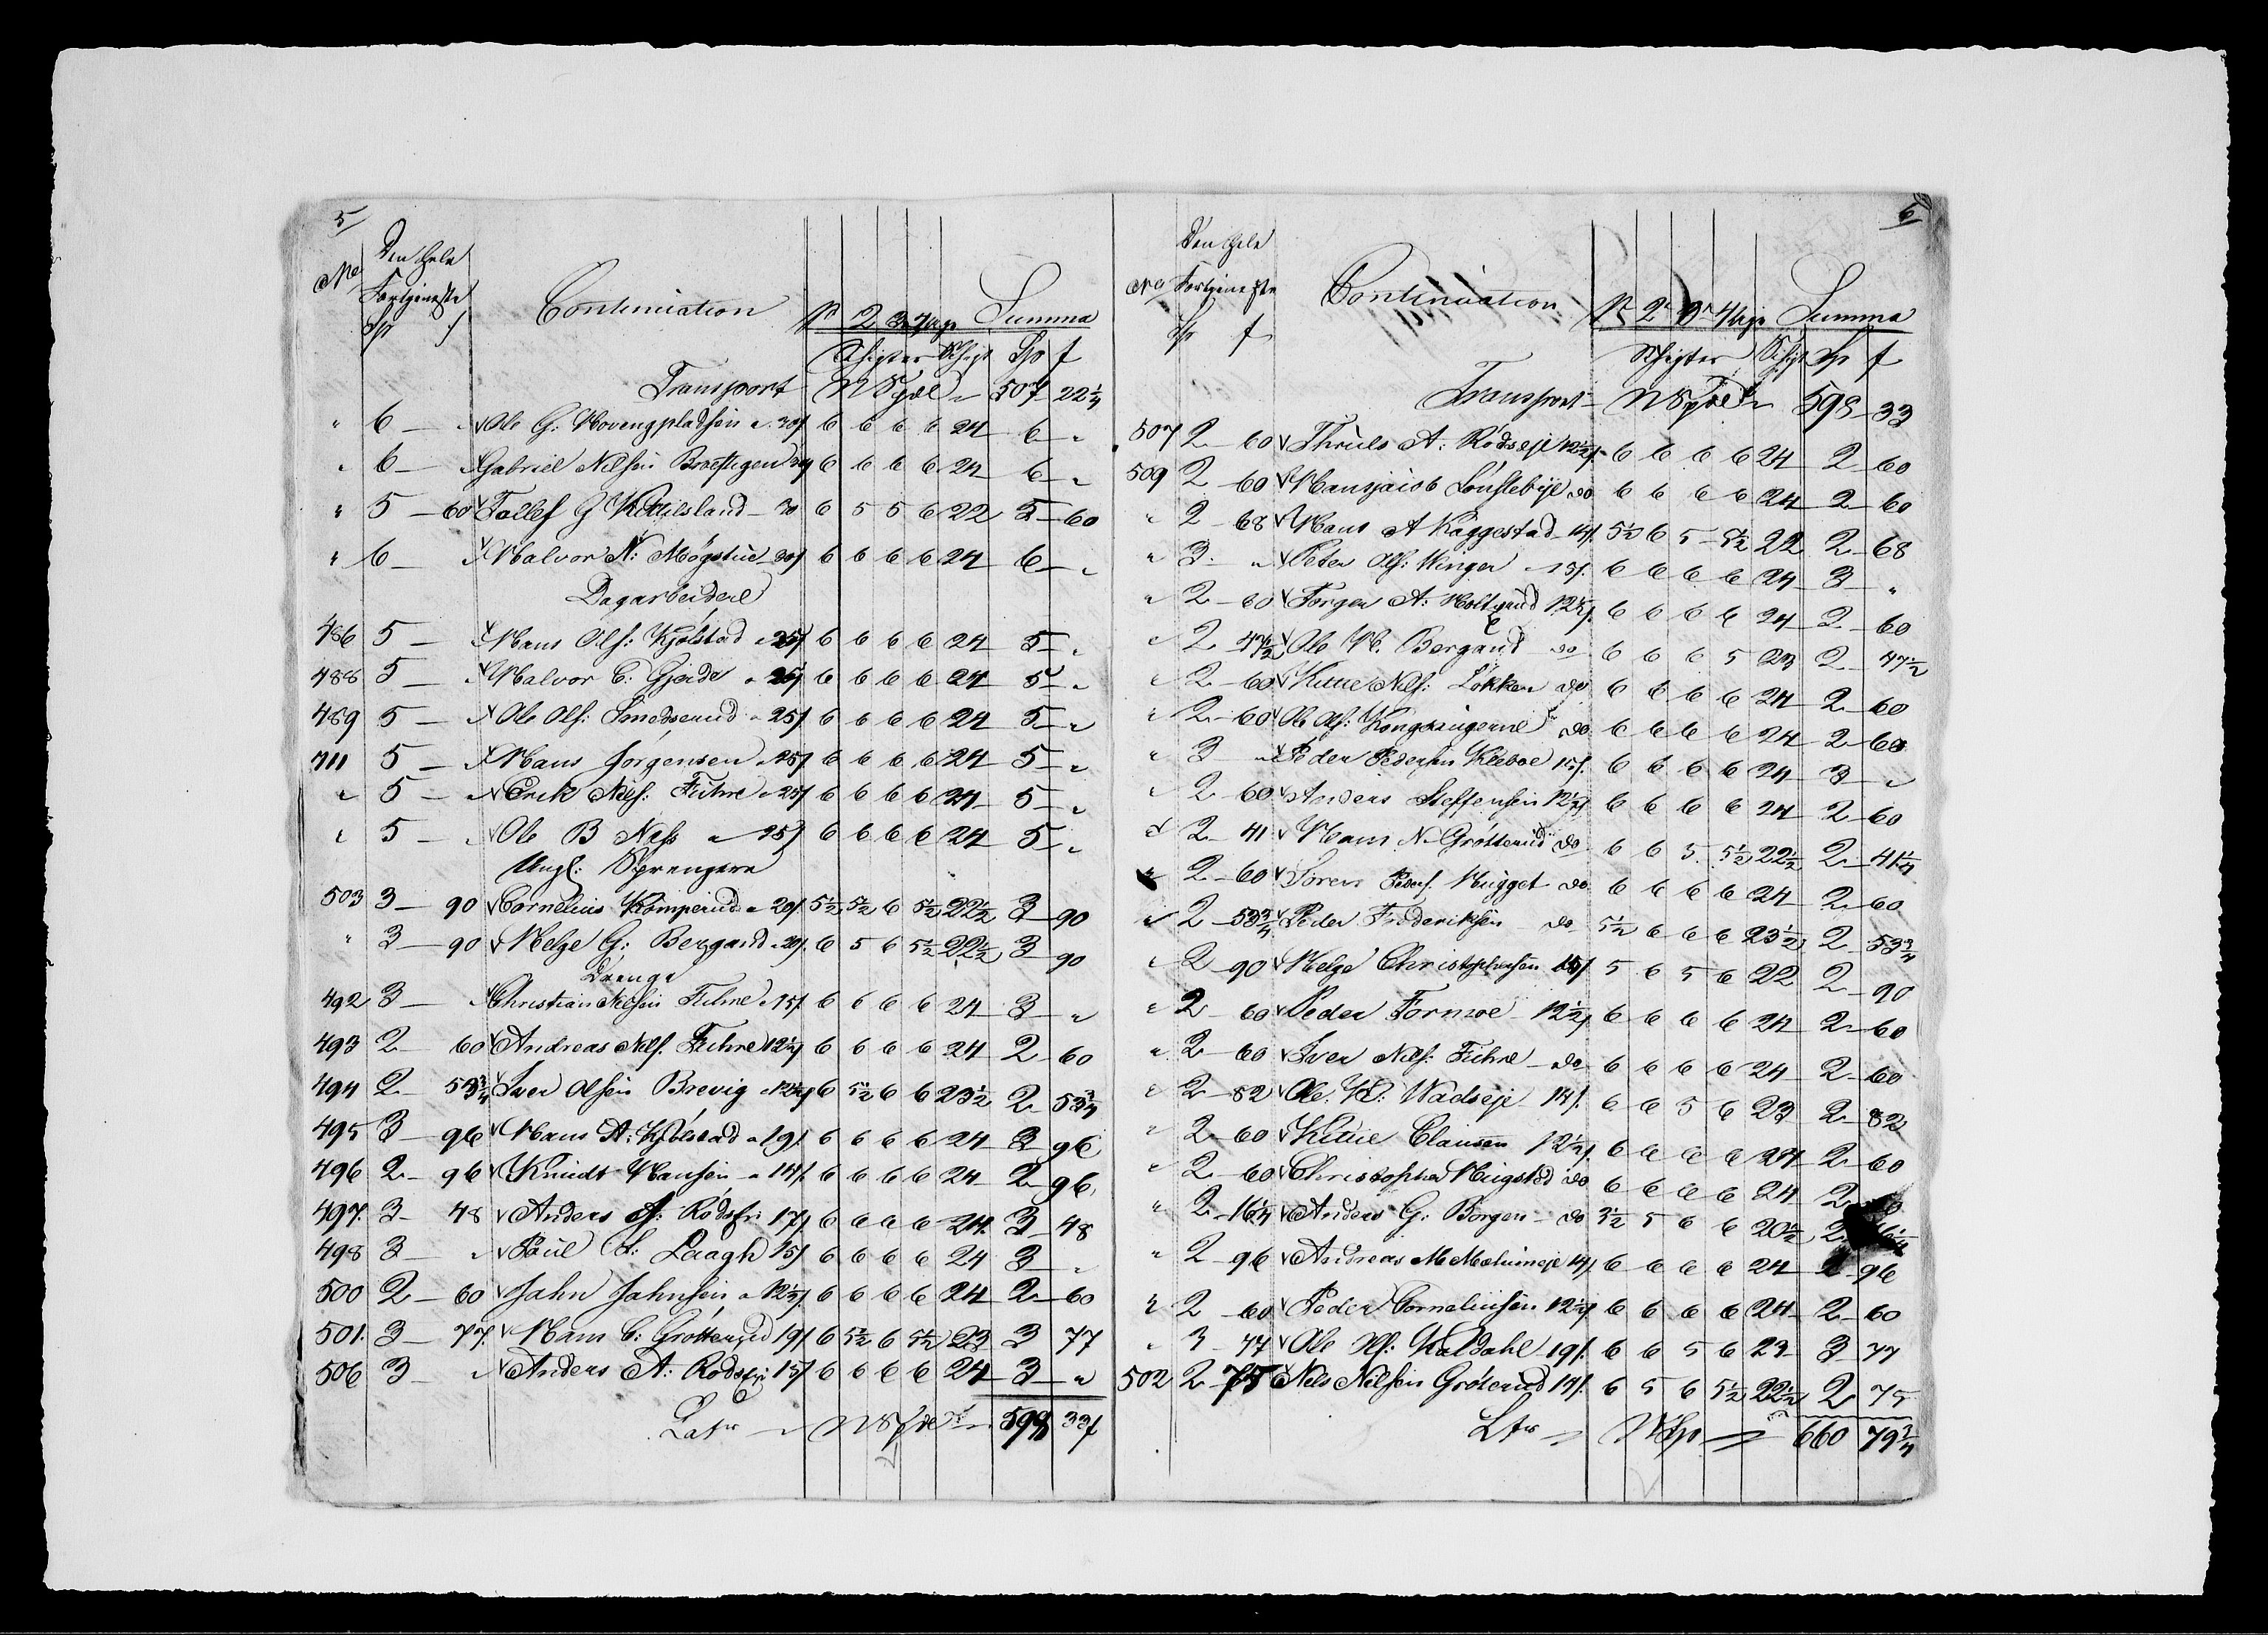 5
No Den hele Fortieneste Continuation 1ste 2 3de 4 Uge Summa
Sp ƒ Schigter Schigt Sp ƒ
Transport NSpdl " 507 22 1/4
" 6 — " Ole G: Hovengpladsen " 30ƒ 6 6 6 6 24 6 — "
" 6 — " Gabriel Nilsen Broestigen 30ƒ 6 6 6 6 24 6 — "
" 5 — 60 Tollef G Kittilsland — 30 6 5 5 6 22 5 — 60
" 6 — " Halvor N: Møgstue — 30ƒ 6 6 6 6 24 6 — "
Dagarbeidere
486 5 — " Hans Ols: Kjølstad " 25ƒ 6 6 6 6 24 5 — "
488 5 — " Halvor C: Gjeide " 25ƒ 6 6 6 6 24 5 — "
489 5 — " Ole Ols: Smedserud " 25ƒ 6 6 6 6 24 5 — "
711 5 — " Hans Jørgensen " 25ƒ 6 6 6 6 24 5 — "
" 5 — " Erik Nils: Fuhre " 25ƒ 6 6 6 6 24 5 — "
" 5 — " Ole B Næss " 25ƒ 6 6 6 6 24 5 — "
Ungl: Sprengere
503 3 — 90 Cornelius Komperud " 20ƒ 5 1/2 5 1/2 6 5 1/2 22 1/2 3 90
" 3 — 90 Helge G: Bergarud " 20ƒ 6 5 6 5 1/2 22 1/2 3 90
Drenge
492 3 — " Christian Nilsen Fuhre " 15ƒ 6 6 6 6 24 3 — "
493 2 — 60 Andreas Nils. Fuhre 12 1/2ƒ 6 6 6 6 24 2 — 60
494 2 — 53 3/4 Iver Olsen Brevig " 12 1/2ƒ 6 5 1/2 6 6 23 1/2 2 — 53 3/4
495 3 — 96 Hans A: Kjølstad " 19ƒ 6 6 6 6 24 3 96
496 2 — 96 Knudt Hansen — " 14ƒ 6 6 6 6 24 2 — 96
497. 3 — 48 Anders A: Rødsej: 17ƒ 6 6 6 6 24 3 — 48
498 3 — " Poul A: Laagh 15ƒ 6 6 6 6 24 3 — "
500 2 — 60 Jahn Jahnsen " 12 1/2ƒ 6 6 6 6 24 2 — 60
501. 3 — 77 Hans C: Grøtterud 19ƒ 6 5 1/2 6 5 1/2 23 3 77
506 3 — " Anders A: Rødsej: 15ƒ 6 6 6 6 24 3 — "
Latr — NSpdl 598 33ƒ
6
No Den hele Fortieneste Continuation 1ste 2de 3de 4 Uge Summa
Sp ƒ Schigter Schigt Sp ƒ
Transport — NSpdl 598 — 33
507 2 — 60 Thruls A: Rødseje 12 1/2ƒ 6 6 6 6 24 2 — 60
509 2 — 60 Hansjacob Lonstebye do 6 6 6 6 24 2 — 60
" 2 — 68 Hans A Kaggestad — 14ƒ. 5 1/2 6 5 5 1/2 22 2 — 68
" 3 " Peter Ols: Winger — 15ƒ. 6 6 6 6 24 3 — "
" 2 — 60 Torger A: Holtgaud 12 1/2ƒ. 6 6 6 6 24 2 — 60
" 2 47 1/2 Ole H. Bergarud do 6 6 6 5 23 2 — 47 1/2
" 2 — 60 Kittil Nils: Løkken do 6 6 6 6 24 2 — 60
" 2 — 60 Ole Ols: Kongsrugerne do 6 6 6 6 24 2 — 60
" 3 " Peder Pedersen Kleboe 15ƒ. 6 6 6 6 24 3 — "
" 2 — 60 Anders Steffensen 12 1/2ƒ 6 6 6 6 24 2 — 60
" 2 — 41 Hans N. Grøtterud do 6 6 5 5 1/2 22 1/2 2 — 41 1/4
" 2 — 60 Søren Peders. Hugget do 6 6 6 6 24 2 — 60
" 2 — 53 3/4 Peder Frederiksen do 5 1/2 6 6 6 23 1/2 2 — 53 3/4
" 2 — 90 Helge Christophersen 15ƒ. 5 6 5 6 22 2 — 90
" 2 60 Peder Formoe 12 1/2ƒ. 6 6 6 6 24 2 — 60
" 2 — 60 Iver Nils: Fuhre — do 6 6 6 6 24 2 — 60
" 2 — 82 Ole H: Wadseje 14ƒ. 6 6 5 6 23 2 — 82
" 2 — 60 Kittil Clausen 12 1/2ƒ. 6 6 6 6 24 2 — 60
" 2 — 60 Christopher Hugsted do 6 6 6 6 24 2
" 2 — 16 1/4 Anders G: Borgen — do 3 1/2 5 6 6 20 1/2 2 16 1/4
" 2 — 96 Andreas M Mælumeje 14ƒ. 6 6 6 6 24 2 — 96
" 2 — 60 Peder Corneliusen 12 1/2ƒ 6 6 6 6 24 2 — 60
" 3 — 77 Ole Ols: Haldahl — 19ƒ. 6 6 5 6 23 3 — 77
502 2 75 Nels Nilsen Grøterud 14ƒ. 6 5 6 5 1/2 22 1/2 2 75
Latr — NSp — 660 79 3/4